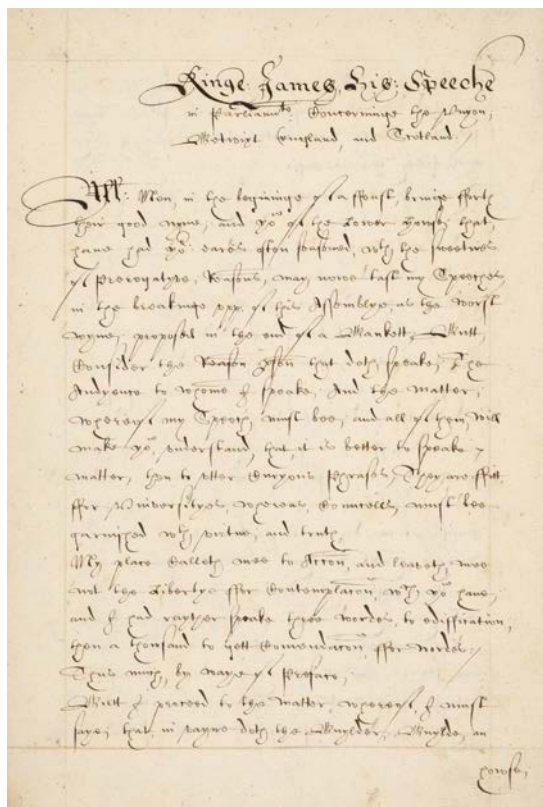 Kinge James, His: Speeche
in Parliamte: Concerninge the Vnyon,
Betwixt England, and Scotland./
All: Men, in the beginninge of a ffeast, bringe ffurth
their good wyne, and yor of the Lower House, that
have had yor: eares often seasoned, wth the sweetnes
of Prerogatyve, Reasons, may nowe tast my Speeches
in the breakinge vpp, of this Assemblye, as the worst
wyne, proposed in the end of a Bankett, Butt
Consider the Reason that doth speake, The
Audyence to whome I speake, And the matter,
whereof my Speech, must bee, and all of them, will
make yo, vnderstand, that, it is better to speake
matter, then to vtter Curyous Phrases, They are ffitt
ffor Vniversityes, whereas Councells, must bee
garnished wth, vertue, and truth,
My place Calleth mee to Accon, and leaveth mee
not the Libertye ffor Contemplacon, wch yo have,
and I had rayther speake three wordes, to edifficatiōn,
then a thousand to gett Comendacon, ffor wordes,
Thus much, by waye of Preface,
Butt I proceed to the matter, whereof, I must
saye, that, in vayne doth the Buylder, Buylde, an
howse,